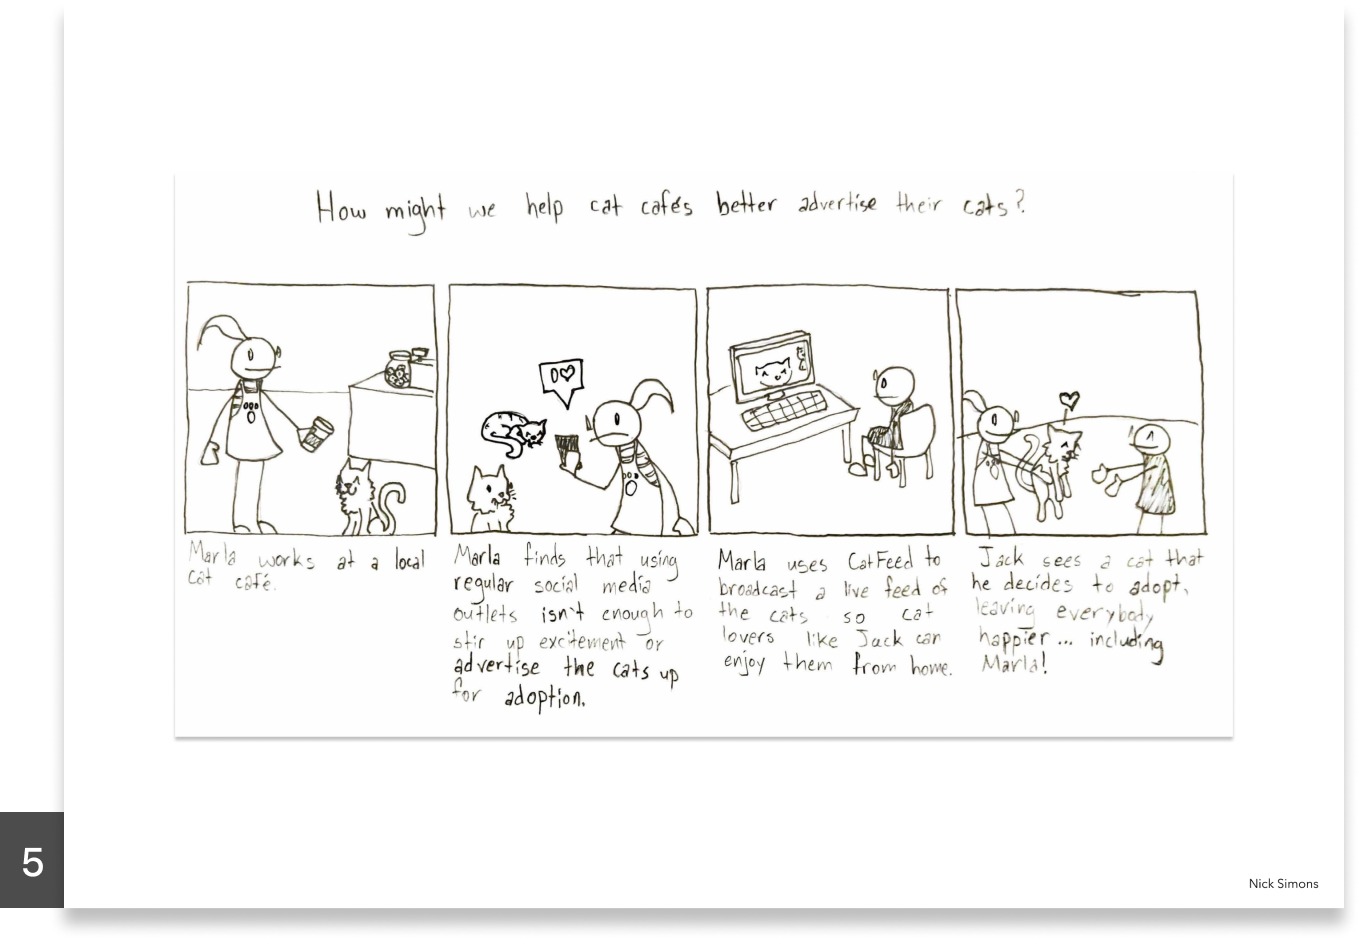 How might we help cat cafés better advertise their cats?
0♡
Marla works at a local
cat café.
Marla finds that using
regular social media
outlets isn't enough to
stir up excitement or
advertise the cats up
for adoption.
Marla uses CatFeed to
broadcast a live feed of
the cats so cat
lovers like Jack can
enjoy them from home.
Jack sees a cat that
he decides to adopt,
leaving everybody
happier... including
Marla!
5
Nick Simons